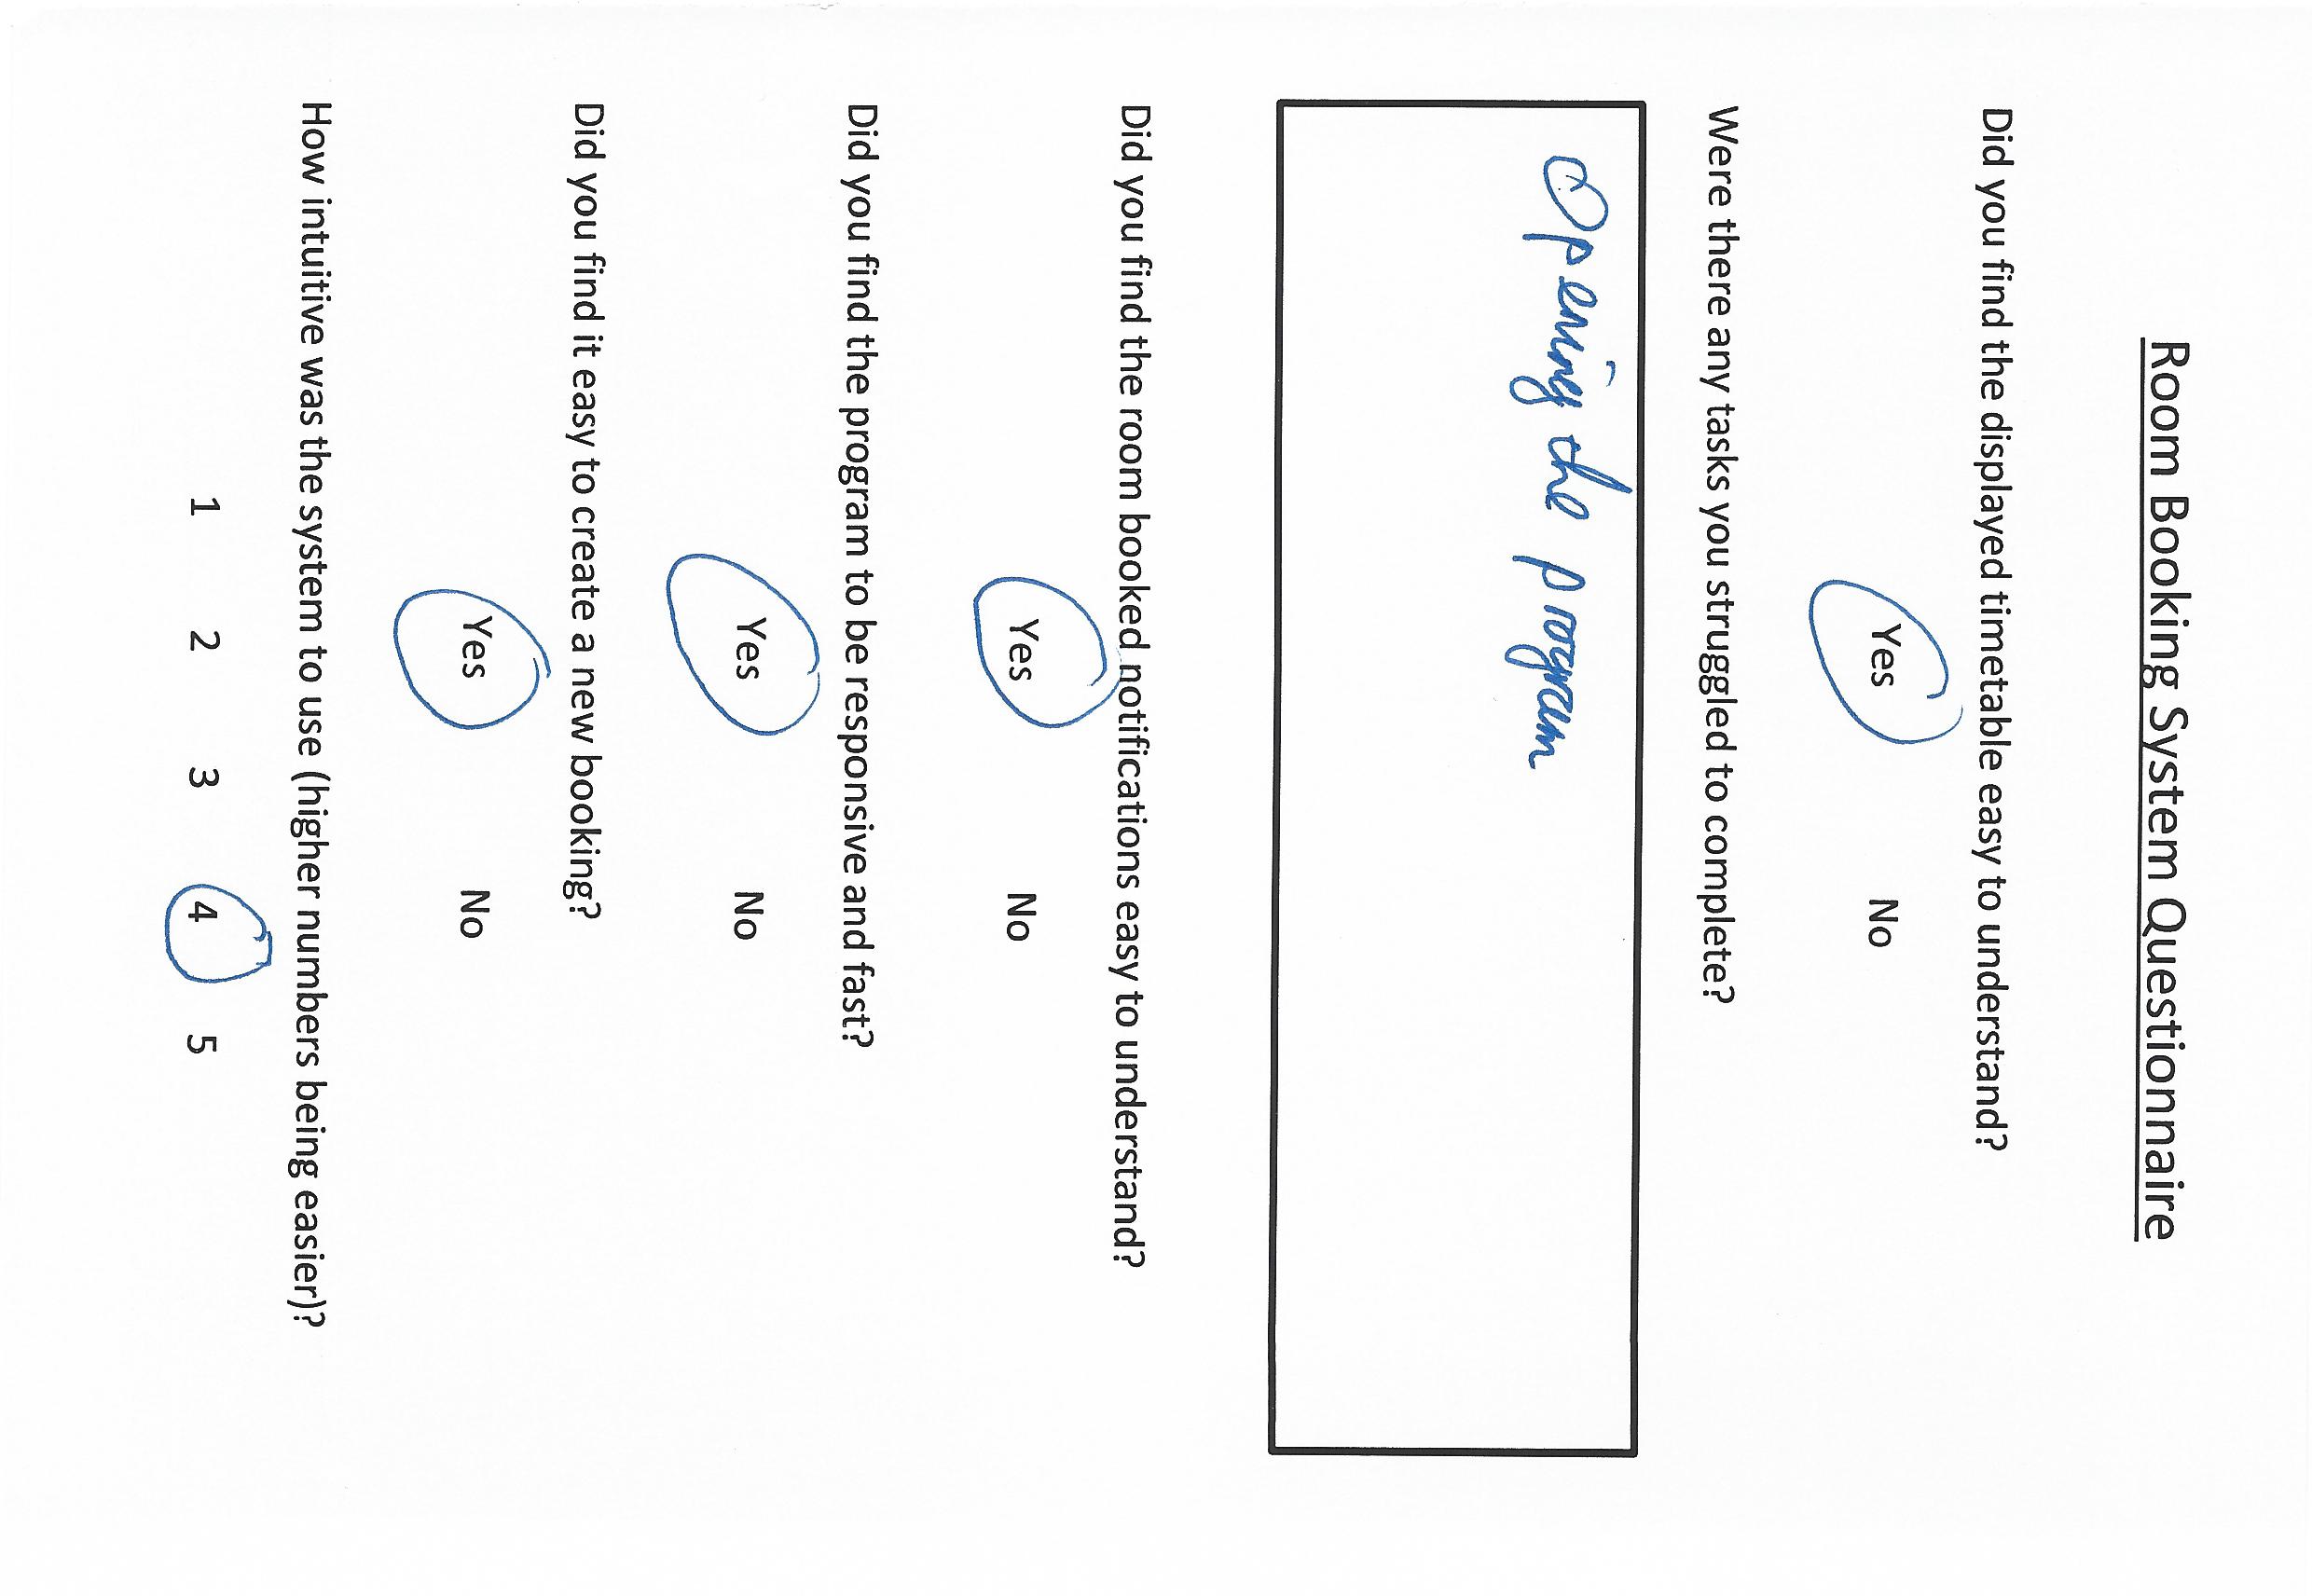 Room Booking System Questionnaire
Did you find the displayed timetable easy to understand?
Yes No
Were there any tasks you struggled to complete?
Opening the program
Did you find the room booked notifications easy to understand?
Yes No
Did you find the program to be responsive and fast?
Yes No
Did you find it easy to create a new booking?
Yes No
How intuitive was the system to use (higher numbers being easier)?
1 2 3 4 5